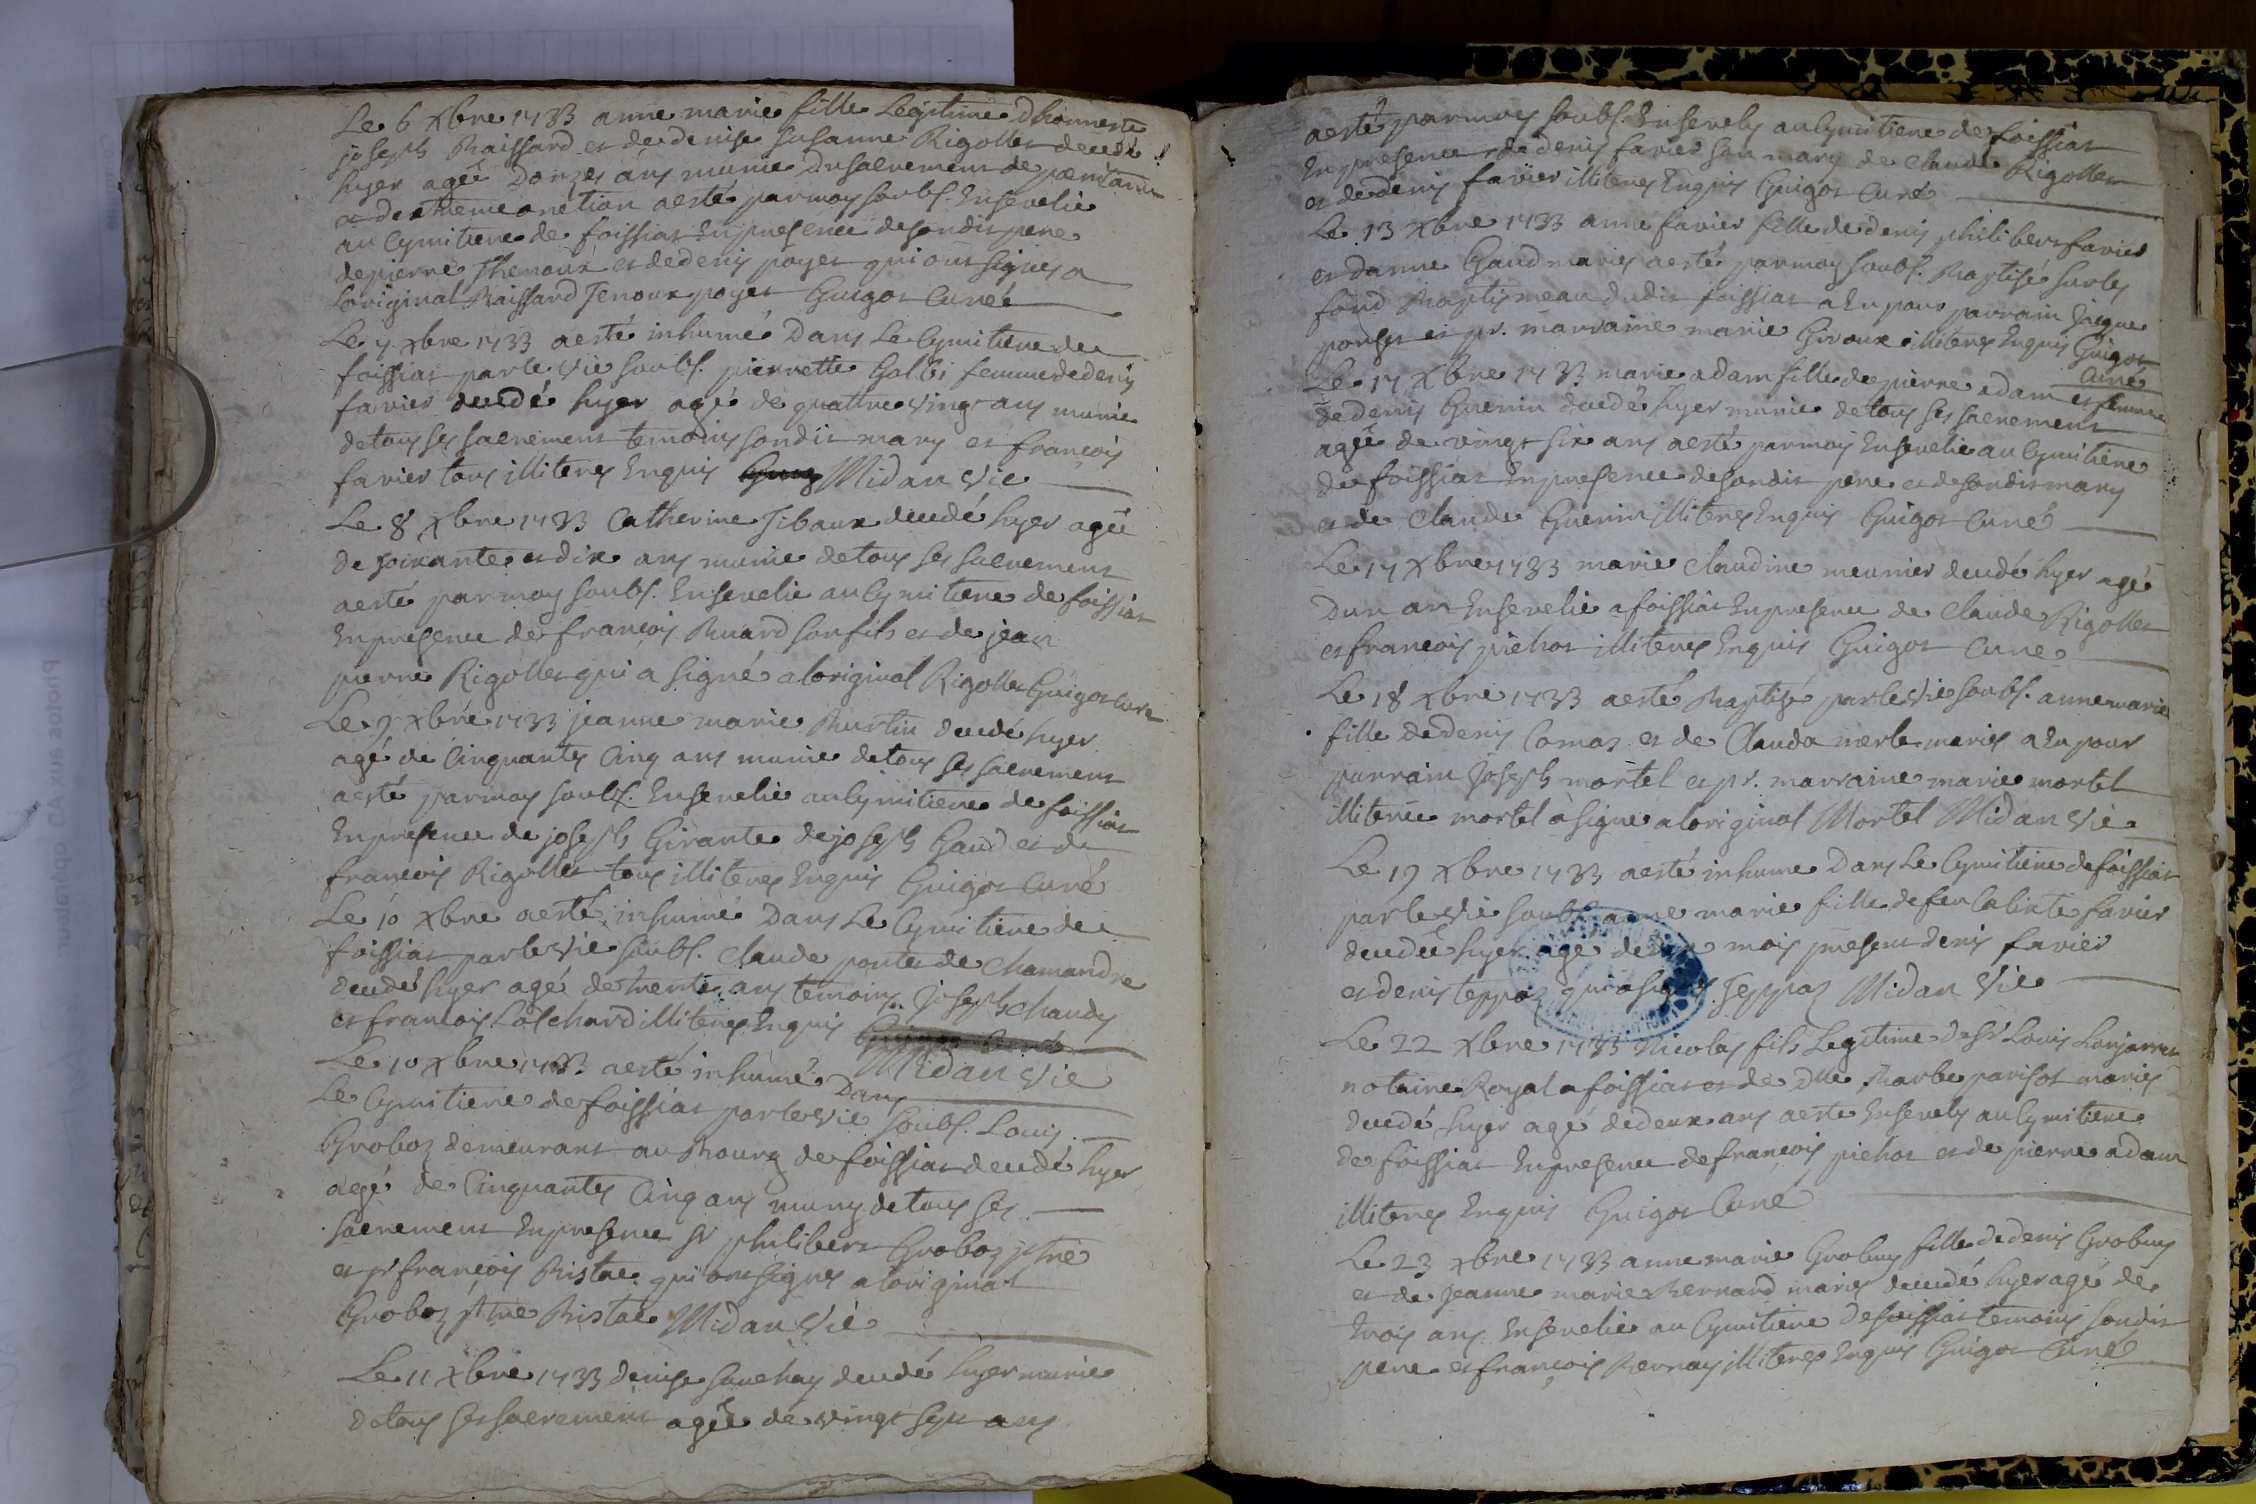 Le 6 xbre 1733 anne marie fille Legitime Dhonneste
joseph Raissard et de denise susanne Rigollet decedé
hyer agée Donzes ans munie Du sacrement de poenitence
et dextreme onction aesté par moy soubs. Ensevelie
au Cymitiere de foissiat En presence de sondit pere
de pierre Thenoux et de denis poyet qui ont signes a
Loriginal Raissard Jenoux poyet Guigot Curé
Le 7 xbre 1733 aesté inhumé Dans Le Cymitiere de
foissiat par le vie soubs. pierrette Galbi femme de denis
favier decedé hyer agé de quatre vingt ans munie
de tous ses sacrement temoins sondit mary et francois
favier tous illiteres Enquis Midan vie
Le 8 xbre 1733 Catherine Tibaux decedé hyer agée
de soixante et dix ans munie de tous ses sacrement
aesté par moy soubs. Ensevelie au Cymitiere de foissiat
En presence de francois Ruard son fils et de jean
pierre Rigollet qui a signé a loriginal Rigollet Guigot Curé
Le 9 xbre 1733 jeanne marie Burtin decedé hyer
agé de Cinquantes Cinq ans munie de tous ses sacrement
aesté par moy soubs. Ensevelie au Cymitiere de foissiat
En presence de joseph Girante de joseph Gaud et de
francois Rigollet tous illiteres Enquis Guigot Curé
Le 10 xbre aesté inhumé Dans Le Cymitiere de
foissiat par le vie soubs. Claude pontes de Chamandre
decedé hyer agé de trente ans temoins joseph Chaudy
et francois Lolchard illiteres Enquis
Midan vie
Le 10 xbre 1733 aesté inhumé Dans
Le Cymitiere de foissiat par le vie soubs. Louis
Groboz demeurant au Bourg de foissiat decedé hyer
agé de Cinquantes Cinq ans muny de tous ses
sacrement En presence sr philibert Groboz ptre
et sr francois Ristac qui ont signes a loriginat
Groboz ptre Ristac Midan vie
Le 11 xbre 1733 denise sauchay decedé hyer munie
de tous ses sacrement agée de vingt sept ans
aesté par moy soubs. Ensevely au Cymitiere de foissiat
En presence de denis favier son mary de Claude Rigollet
et de denis favier illiteres Enquis Guigot Curé
Le 13 xbre 1733 anne favier fille de denis philibert favier
et danne Gaud maries aesté par moy soubs. Baptisé sur les
fond Baptismeau dudit foissiat a Eu pour parrain jacque
ponset et pr. marraine marie Giroux illiteres Enquis Guigot
Curé
Le 14 xbre 1733 marie adam fille de pierre adam et femme
de denis Guerin decedé hyer munie de tous ses sacrement
agée de vingt six ans aesté par moy Ensevelie au Cymitiere
de foissiat En presence de sondit pere et de sondit mary
et de Claude Guerin illiteres Enquis Guigot Curé
Le 14 xbre 1733 marie Claudine meunier decedé hyer agé
Dun an Ensevelie a foissiat En presence de Claude Rigollet
et francois pichot illiteres Enquis Guigot Cure
Le 18 xbre 1733 aesté Baptizé par le vie soubs. anne marie
fille de denis Comas et de Clauda merle maries a Eu pour
parrain joseph mortel et pr. marraine marie mortel
illiterée mortel a signé a loriginal Mortel Midan vie
Le 19 xbre 1733 aesté inhumé Dans Le Cymitiere de foissiat
par le vie soubs. anne marie fille de feu Calixte favier
decedée hyer agé de mois present denis favier
et denis teppaz qui a signé Teppaz Midan vie
Le 22 xbre 1733 Nicolas fils Legitime de sr Louis Lonjarret
notaire Royal a foissiat et de Dlle Barbe parisot maries
decedé hyer agé de deux ans aesté Ensevely au Cymitiere
de foissiat En presence de francois pichot et de pierre adam
illiteres Enquis Guigot Curé
Le 23 xbre 1733 anne marie Grobuy fille de denis Grobuy
et de jeanne marie Bernard maries decedé hyer agé de
trois ans Ensevelie au Cymitiere de foissiat temoins sondit
pere et francois Bernay illiteres Enquis Guigot Curé